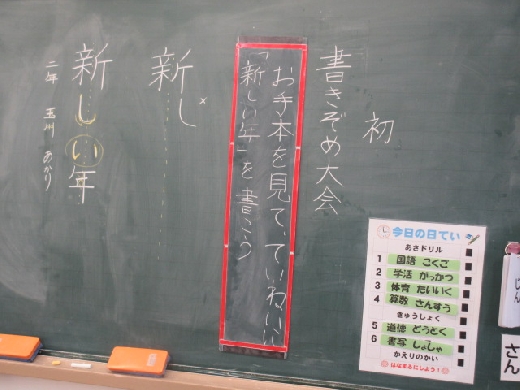 初
書きぞめ大会
お手本を見て、ていねいに
「新しい年」を書こう
新し
×
新しい年
二年 玉川 あかり
今日の日てい
あさドリル
1 国語 こくご
2 学活 がっかつ
3 体育 たいいく
4 算数 さんすう
きゅうしょく
5 道徳 どうとく
6 書写 しょしゃ
かえりのかい
さん